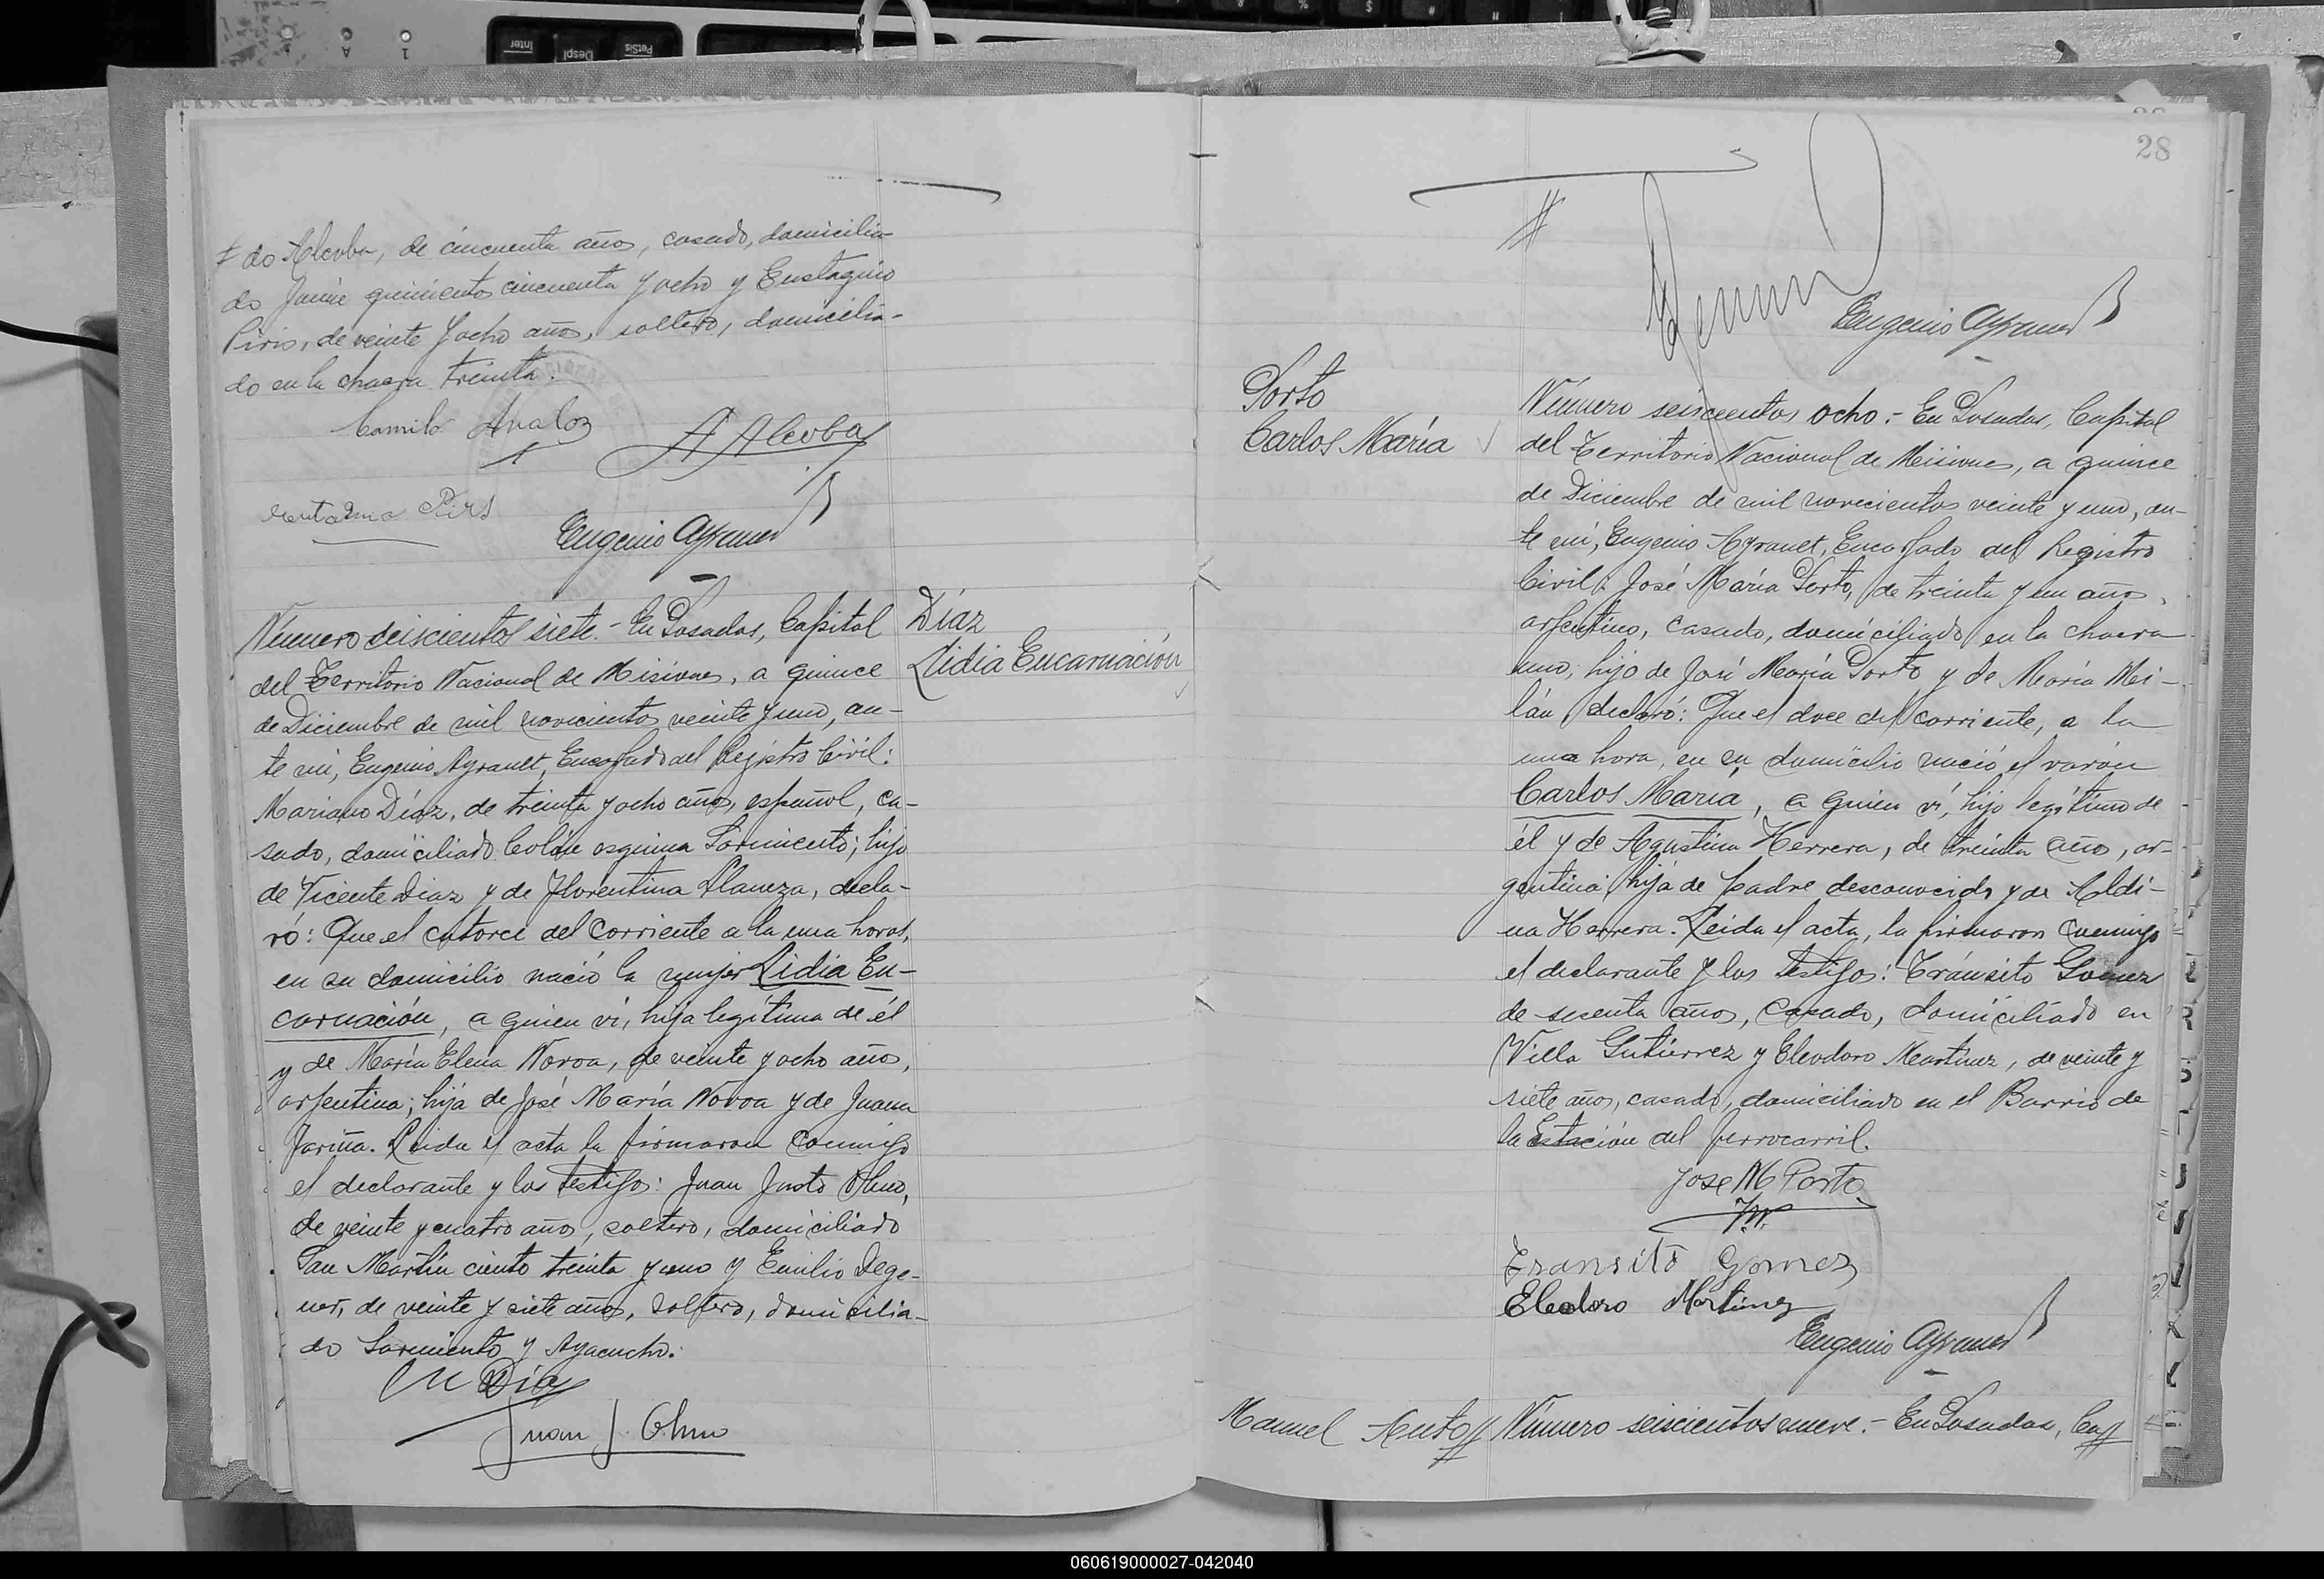 do Alcoba, de cincuenta años, casado, domicilia-
do Junín quinientos cincuenta y ocho y Eustaquio
Piris, de veinte y ocho años, soltero, domicilia-
do en la chacra treinta.
Camilo Avalos
A Alcoba
Piris
Eugenio Ayranet
Número seiscientos siete.- En Posadas, Capital
del Territorio Nacional de Misiones, a quince
de Diciembre de mil novecientos veinte y uno, an-
te mí, Eugenio Ayranet, Encargado del Registro Civil:
Mariano Díaz, de treinta y ocho años, español, ca-
sado, domiciliado Colón esquina Sarmiento; hijo
de Vicente Diaz y de Florentina Llaneza, decla-
ró: Que el catorce del corriente a la una horas,
en su domicilio nació la mujer Lidia En-
carnación, a quien ví, hija legítima de él
y de María Elena Novoa, de veinte y ocho años,
argentina; hija de José María Novoa y de Juana
Fariña. Leida el acta la firmaron conmigo
el declarante y los testigos: Juan Justo Olmo,
de veinte y cuatro años, soltero, domiciliado
San Martín ciento treinta y uno y Emilio Dege-
ner, de veinte y siete años, soltero, domicilia-
do Sarmiento y Ayacucho.
M Díaz
Juan J. Olmo
Díaz
Lidia Encarnación
28
Eugenio Ayranet
Porto
Carlos María
Número seiscientos ocho.- En Posadas, Capital
del Territorio Nacional de Misiones, a quince
de Diciembre de mil novecientos veinte y uno, an-
te mí, Eugenio Ayranet, Encargado del Registro
Civil: José María Porto, de treinta y un años,
argentino, casado, domiciliado en la chacra
uno, hijo de José María Porto y de María Mi-
lán, declaró: Que el doce del corriente, a la
una hora, en su domicilio nació el varón
Carlos María, a quien ví, hijo legítimo de
él y de Agustina Herrera, de treinta años, ar-
gentina; hija de padre desconocido y de Aldi-
na Herrera. Leida el acta, la firmaron conmigo
el declarante y los testigos: Tránsito Gomez
de sesenta años, casado, domiciliado en
Villa Gutiérrez y Eleodoro Martínez, de veinte y
siete años, casado, domiciliado en el Barrio de
la Estación del ferrocarril.
Jose M Porto
Transito Gomez
Eleodoro Martinez
Eugenio Ayranet
Manuel
Número seiscientos nueve.- En Posadas, Cap
060619000027-042040